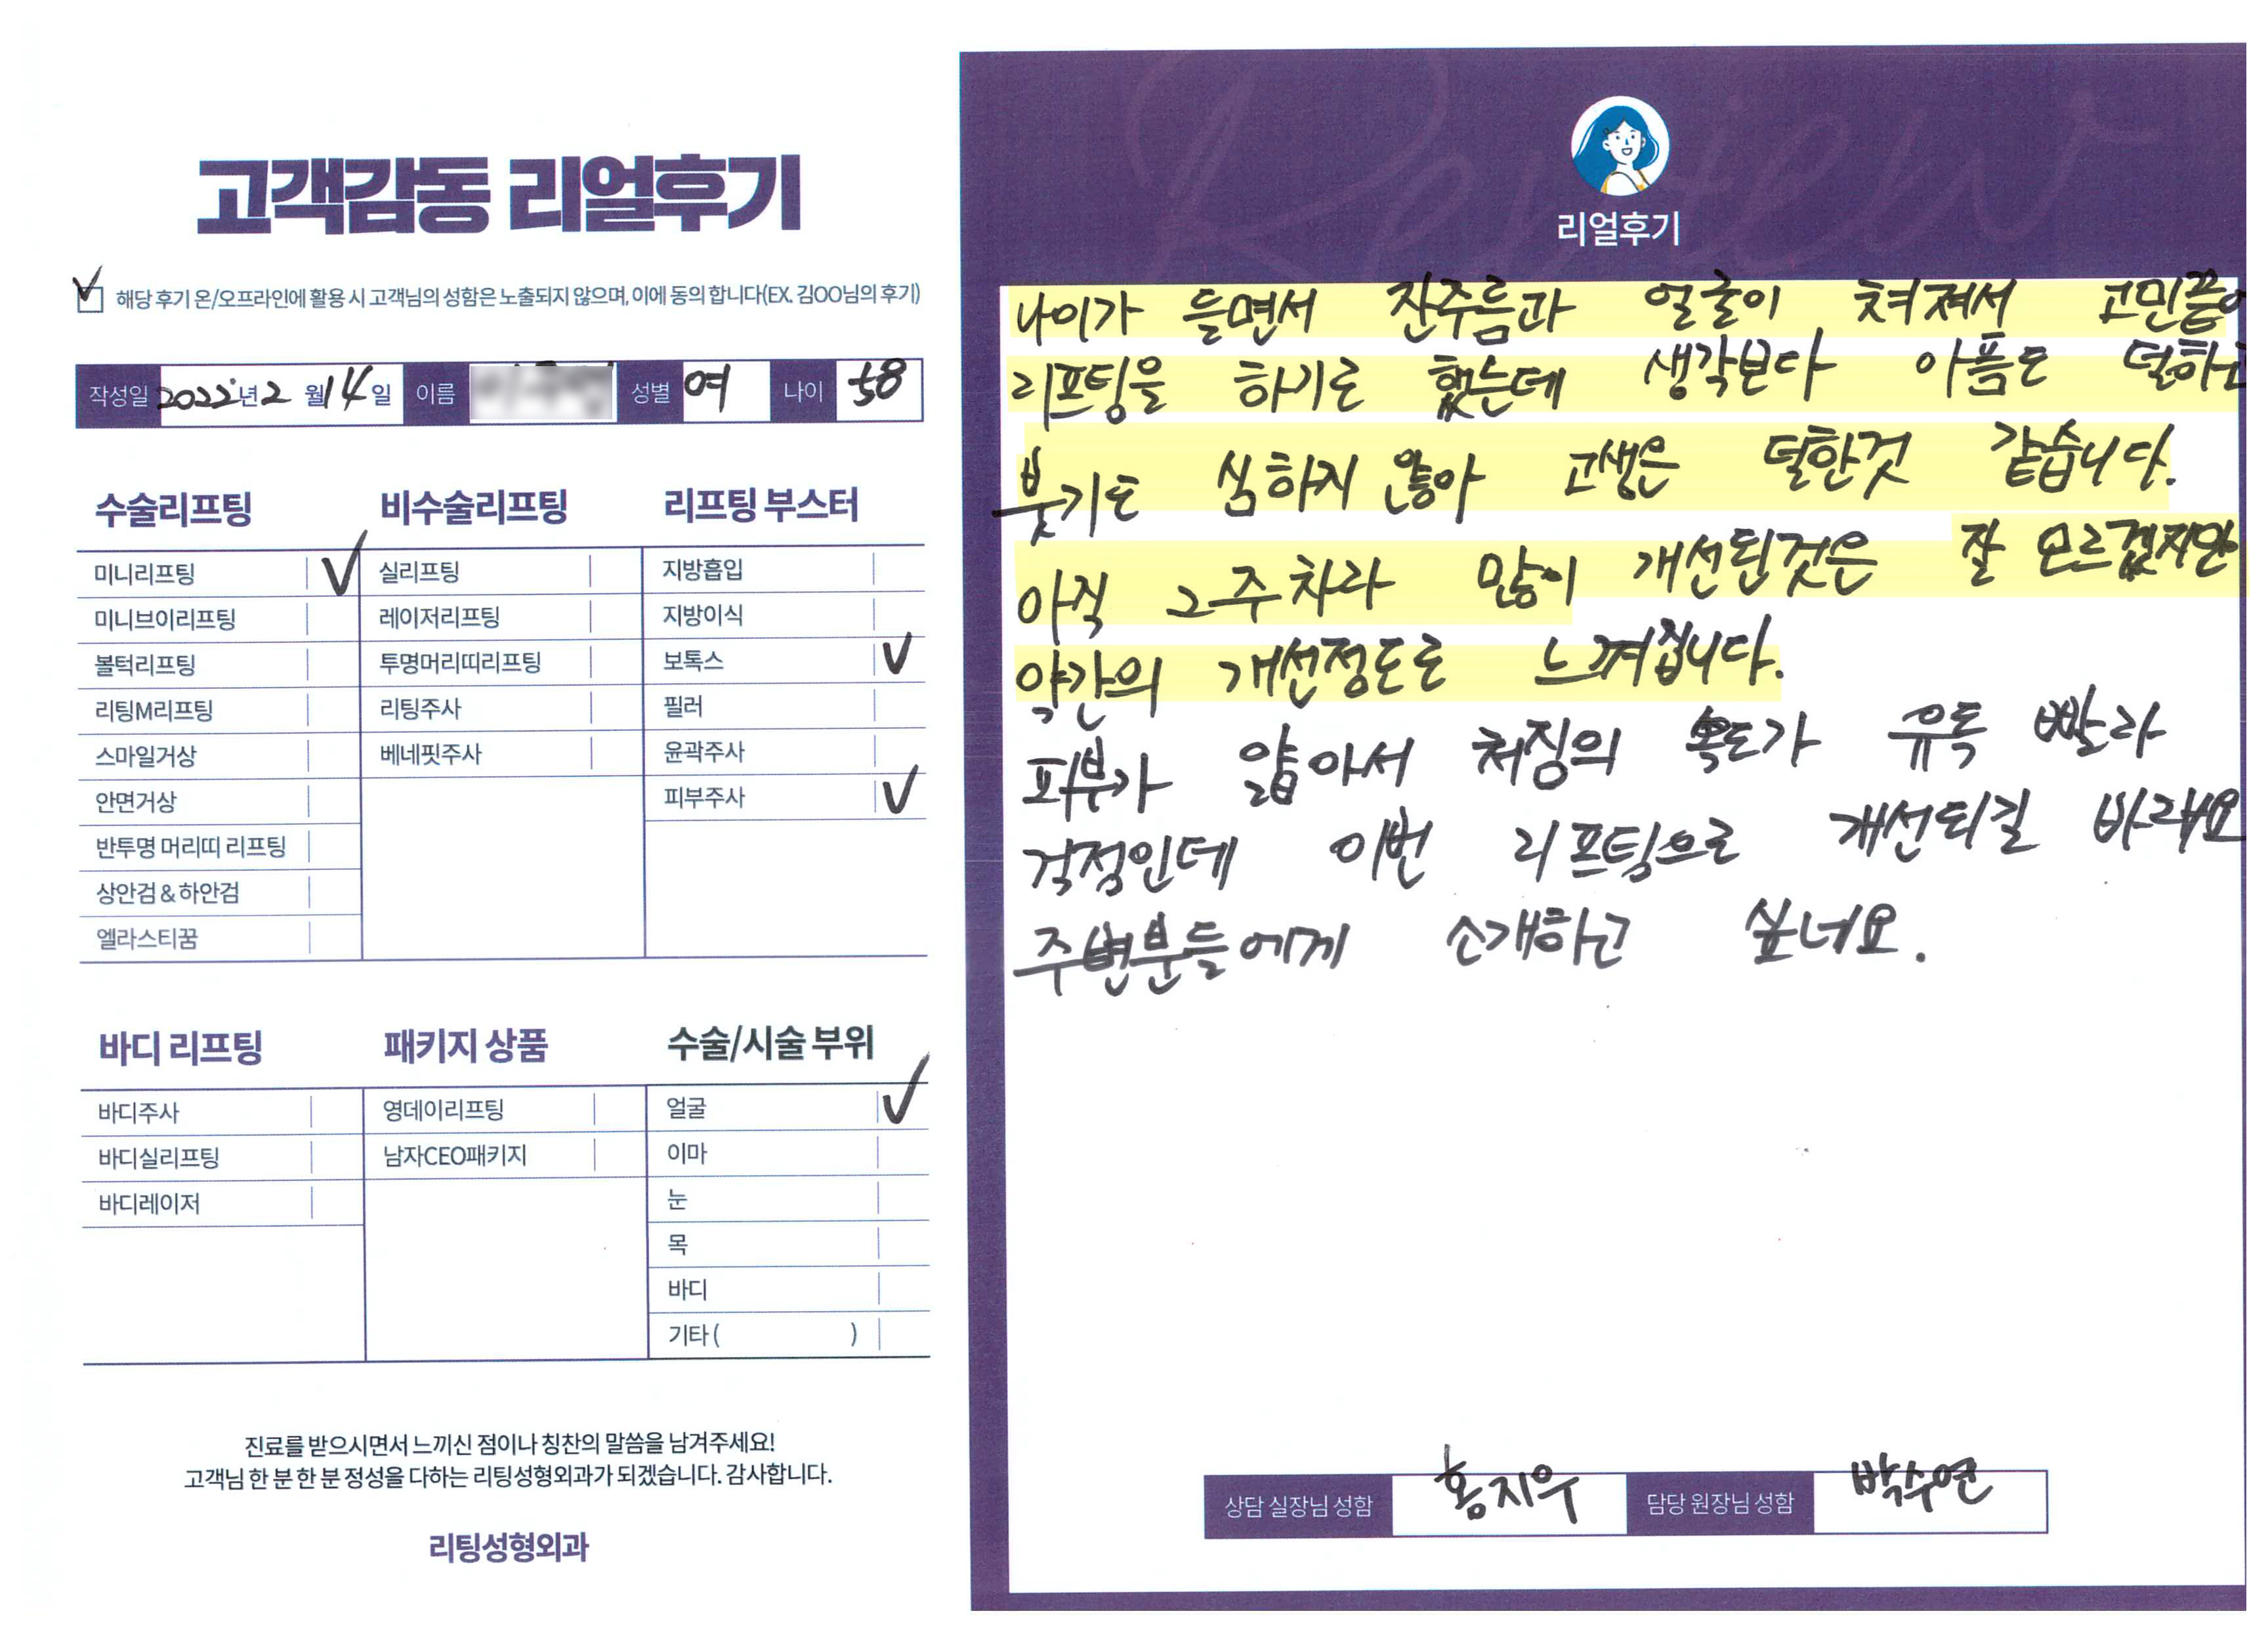 고객감동 리얼후기
해당 후기 온/오프라인에 활용 시 고객님의 성함은 노출되지 않으며, 이에 동의 합니다(EX. 김OO님의 후기)
작성일 2022년 2월 14일 이름 성별 여 나이 58
수술리프팅
미니리프팅
미니브이리프팅
볼턱리프팅
리팅M리프팅
스마일거상
안면거상
반투명 머리띠 리프팅
상안검 & 하안검
엘라스티꿈
비수술리프팅
실리프팅
레이저리프팅
투명머리띠리프팅
리팅주사
베네핏주사
리프팅 부스터
지방흡입
지방이식
보톡스
필러
윤곽주사
피부주사
바디 리프팅
바디주사
바디실리프팅
바디레이저
패키지 상품
영데이리프팅
남자CEO패키지
수술/시술 부위
얼굴
이마
눈
목
바디
기타 ( )
진료를 받으시면서 느끼신 점이나 칭찬의 말씀을 남겨주세요!
고객님 한 분 한 분 정성을 다하는 리팅성형외과가 되겠습니다. 감사합니다.
리팅성형외과
Review
리얼후기
나이가 들면서 잔주름과 얼굴이 쳐져서 고민끝에
리프팅을 하기로 했는데 생각보다 아픔도 덜하고
붓기도 심하지 않아 고생은 덜한것 같습니다.
아직 2주차라 많이 개선된것은 잘 모르겠지만
약간의 개선정도로 느껴집니다.
피부가 얇아서 처짐의 속도가 유독 빨라
걱정인데 이번 리프팅으로 개선되길 바래요
주변분들에게 소개하고 싶네요.
상담 실장님 성함 홍지우 담당 원장님 성함 박수연